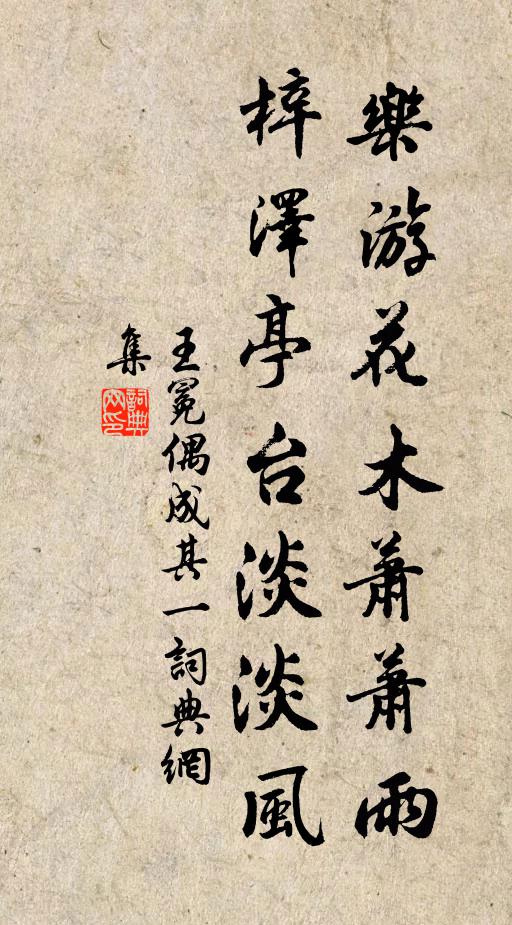 樂游花木蕭蕭雨
梓澤亭台淡淡風
王冕偶成其一詞典網
集
詞典
网印